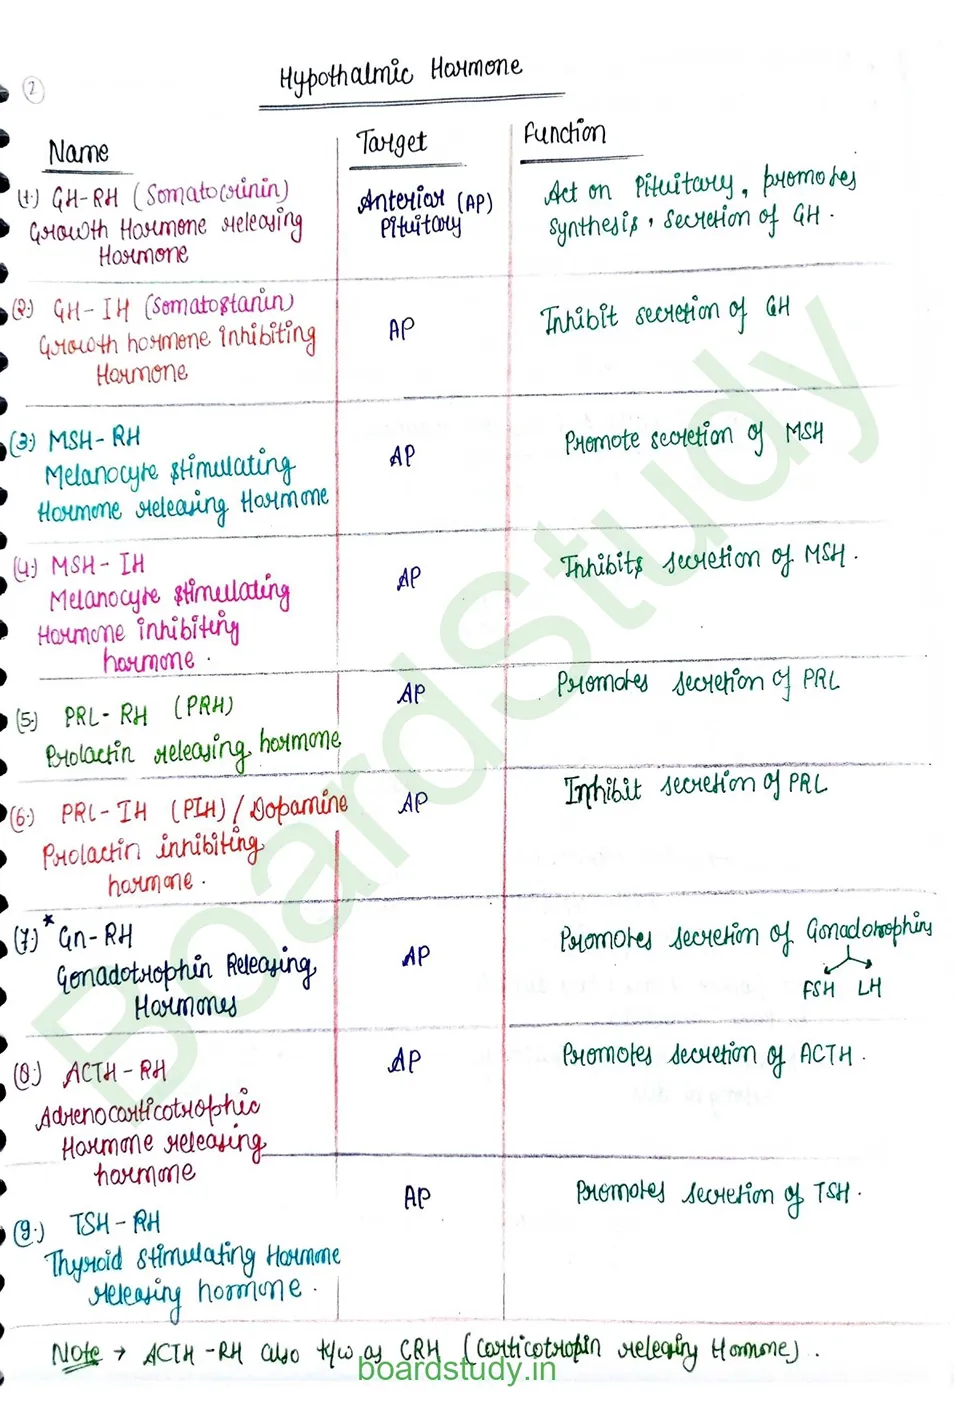 2
Hypothalmic Hormone
Name
Target
Function
(1.) GH-RH (Somatocrinin)
Growth Hormone releasing
Hormone
Anterior (AP)
Pituitary
Act on Pituitary, promotes
synthesis, secretion of GH.
(2.) GH-IH (Somatostanin)
Growth hormone inhibiting
Hormone
AP
Inhibit secretion of GH
(3.) MSH-RH
Melanocyte stimulating
Hormone releasing Hormone
AP
Promote secretion of MSH
(4.) MSH-IH
Melanocyte stimulating
Hormone inhibiting
hormone.
AP
Inhibits secretion of MSH.
(5.) PRL-RH (PRH)
Prolactin releasing hormone
AP
Promotes secretion of PRL
(6.) PRL-IH (PIH)/Dopamine
Prolactin inhibiting
hormone.
AP
Inhibit secretion of PRL
(7.)* Gn-RH
Gonadotrophin Releasing
Hormones
AP
Promotes secretion of Gonadotrophins
FSH LH
(8.) ACTH-RH
Adrenocorticotrophic
Hormone releasing
hormone
AP
Promotes secretion of ACTH.
(9.) TSH-RH
Thyroid stimulating Hormone
releasing hormone.
AP
Promotes secretion of TSH.
Note → ACTH-RH also k/w as CRH (Corticotropin releasing Hormone).
boardstudy.in
BoardStudy